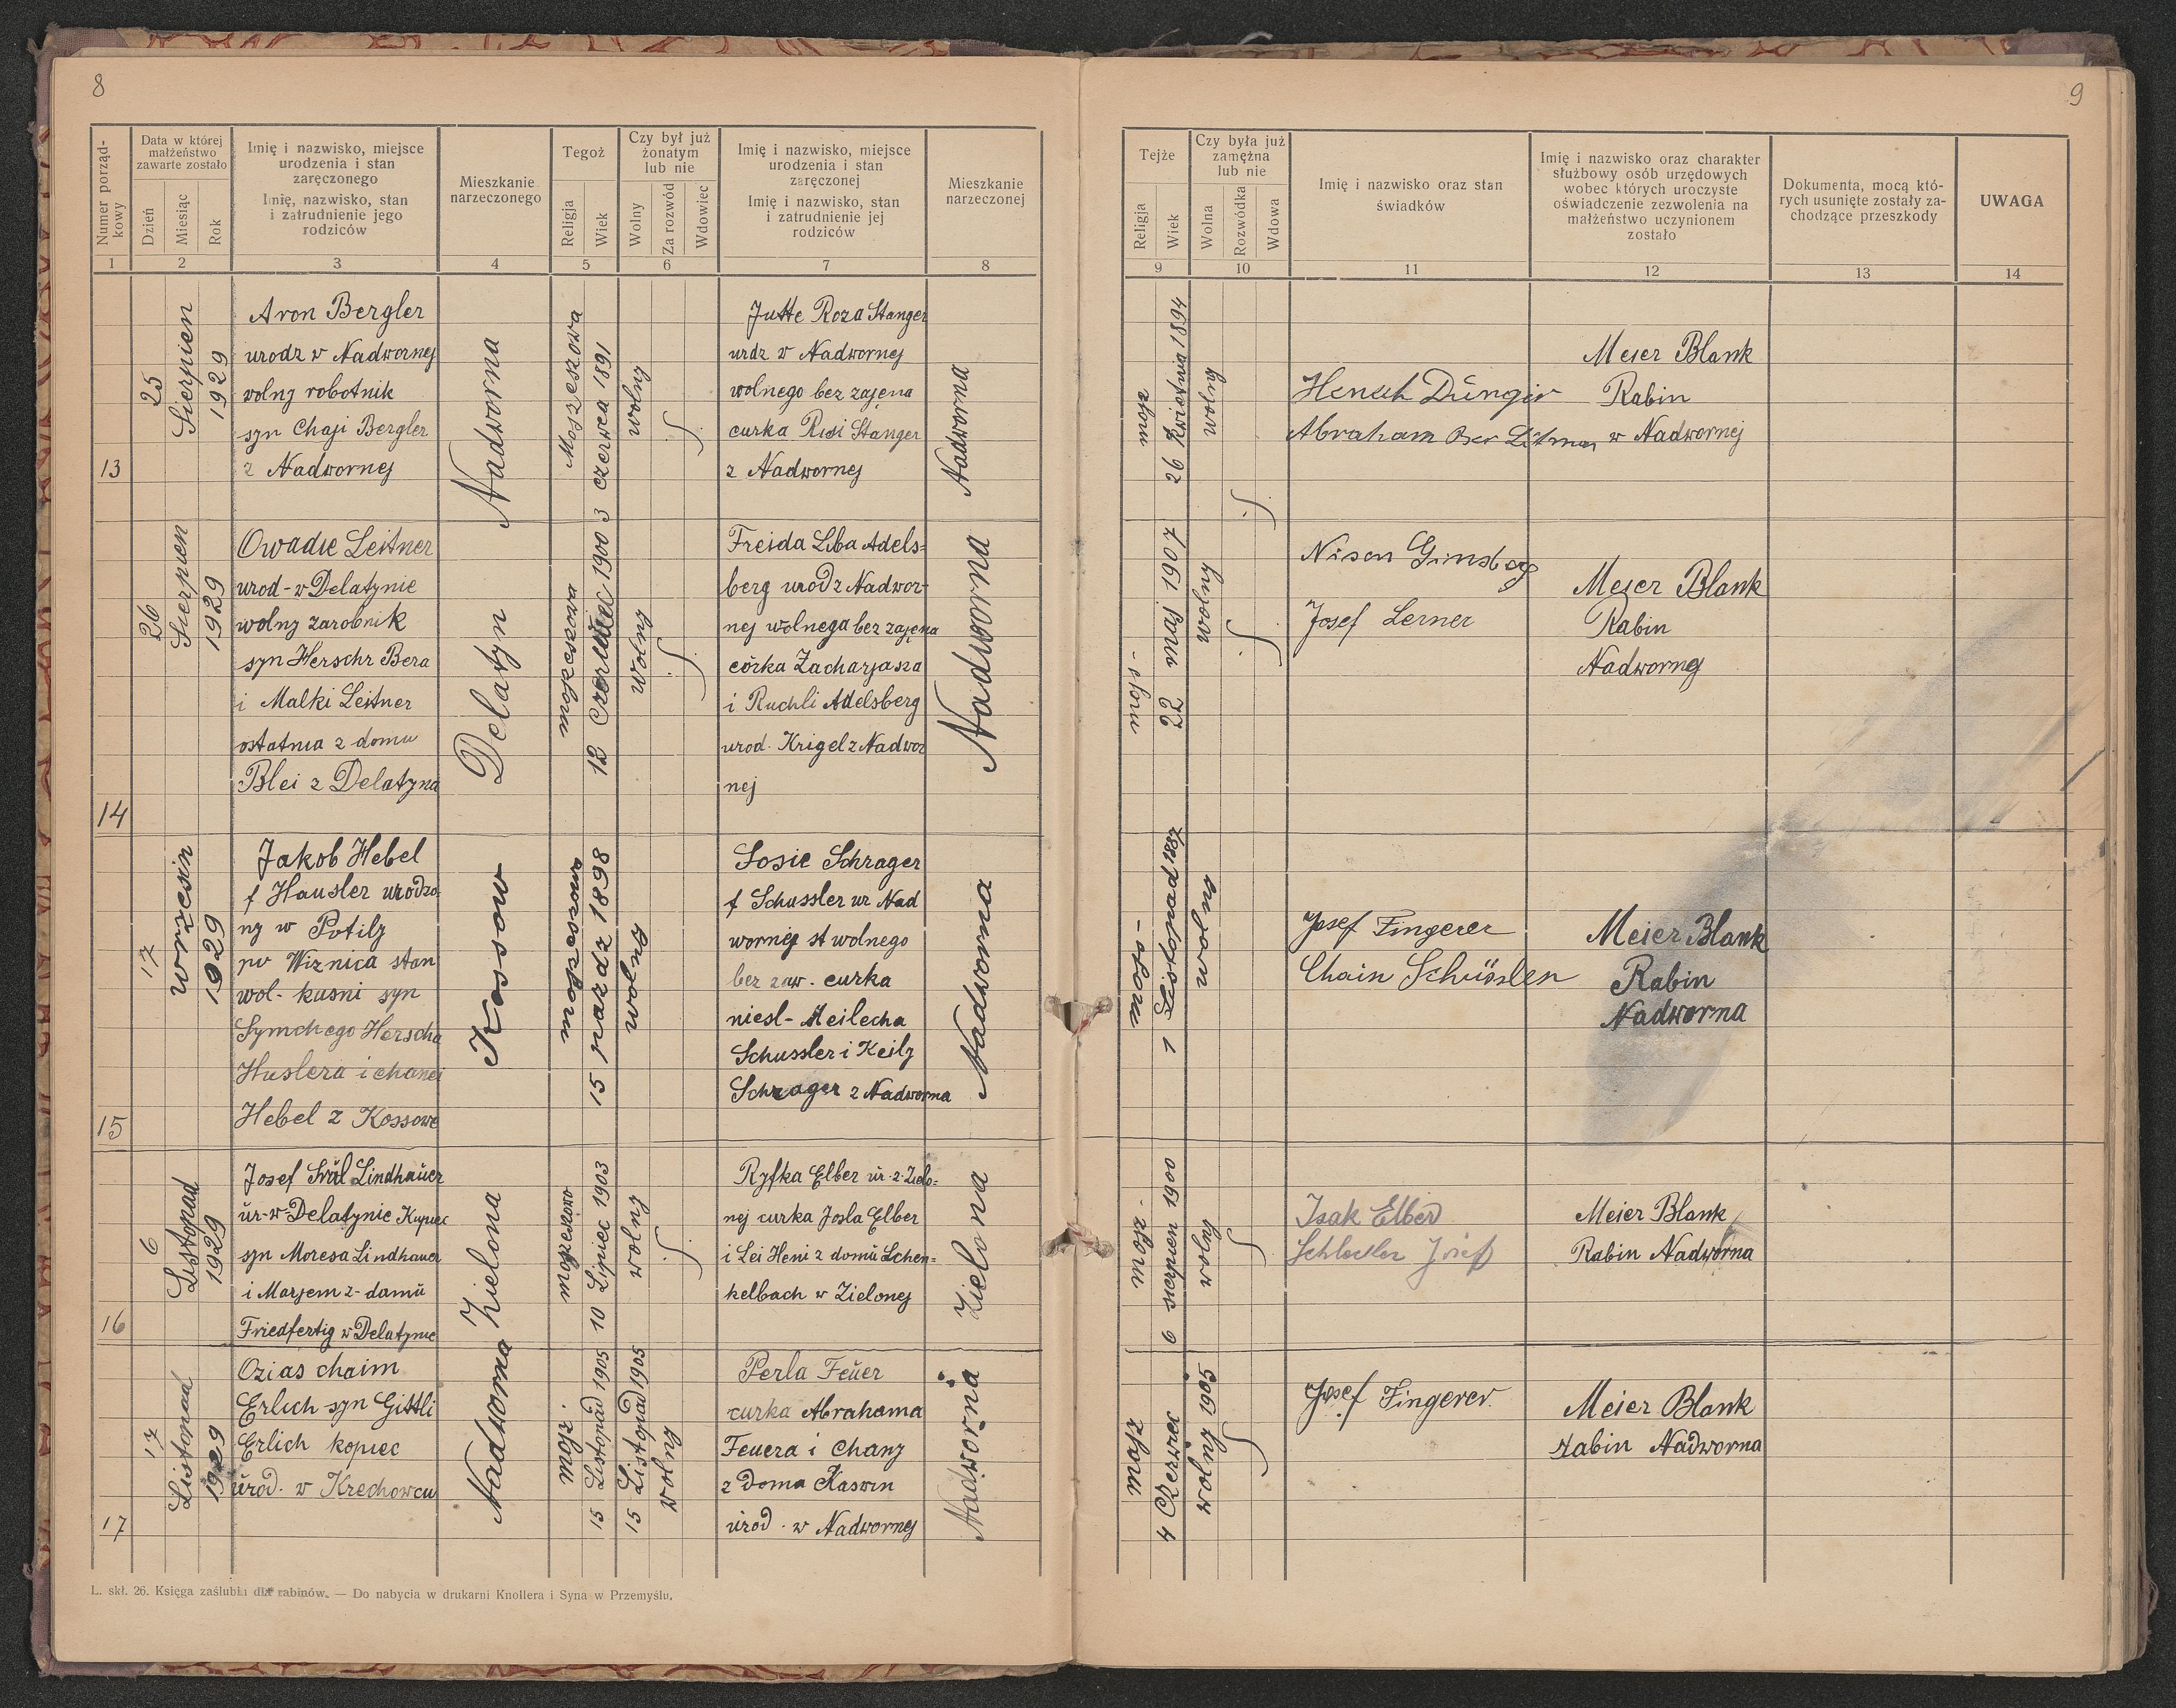 8
Numer porządkowy
Data w której małżeństwo zawarte zostało
Dzień
Miesiąc
Rok
Imię i nazwisko, miejsce urodzenia i stan zaręczonego
Imię, nazwisko, stan i zatrudnienie jego rodziców
Mieszkanie narzeczonego
Tegoż
Religja
Wiek
Czy był już żonatym lub nie
Wolny
Za rozwód
Wdowiec
Imię i nazwisko, miejsce urodzenia i stan zaręczonej
Imię i nazwisko, stan i zatrudnienie jej rodziców
Mieszkanie narzeczonej
1
2
3
4
5
6
7
8
13
25
Sierpien
1929
Aron Bergler
urodz w Nadwornej
wolny robotnik
syn Chaji Bergler
z Nadwornej
Nadworna
Mojzeszowa
3 czerwca 1891
wolny
Jutte Roza Stanger
urdz w Nadwornej
wolnego bez zajena
curka Risi Stanger
z Nadwornej
Nadworna
14
26
Sierpien
1929
Owadie Leitner
urod-w Delatynie
wolny zarobnik
syn Herschr Bera
i Malki Leitner
ostatnia z domu
Blei z Delatyna
Delatyn
mojzeszowa
12 Czerwiec 1900
wolny
Freida Liba Adels=
berg urodz Nadwor-
nej wolnega bez zajęna
córka Zacharjasza
i Ruchli Adelsberg
urod. Krigel z Nadwor
nej
Nadworna
15
17
worzesin
1929
Jakob Hebel
f Hausler urodzo
ny w Potily
pw Wiznica stan
wol- kusni syn
Symchego Herscha
Huslera i chanci
Hebel z Kossowe
Kossow
mojzeszowa
15 pazdz 1898
wolny
Sosie Schrager
f Schussler ur Nad
wornij st wolnego
bez zaw. curka
niesl- Meilecha
Schussler i Keily
Schrager z Nadworna
Nadworna
16
6
Listopad
1929
Josef Srül Lindhauer
ur-w-Delatynie Kupiec
syn Moresa Lindhauer
i Marjem z- domu
Friedfertig w Delatynie
Zielona
mojzeszowo
10 Lipiec 1903
wolny
Ryfka Elber ur-z-Zielo=
nej curka Josla Elber
i Lei Heni z domu Schen=
kelbach w Zielonej
Zielona
17
17
Listopad
1929
Ozias chaim
Erlich syn Gittli
Erlich kopiec
urod. w Krechowcu
Nadworna
mojz.
15 Listopad 1905
15 Listopad 1905
wolny
Perla Feuer
curka Abrahama
Feuera i Chany
z Doma Kaswin
urod. w Nadwornej
Nadworna
L. skł. 26. Księga zaślubin dla rabinów. — Do nabycia w drukarni Knollera i Syna w Przemyślu.
9
Tejże
Religja
Wiek
Czy była już zamężna lub nie
Wolna
Rozwódka
Wdowa
Imię i nazwisko oraz stan
świadków
Imię i nazwisko oraz charakter
służbowy osób urzędowych
wobec których uroczyste
oświadczenie zezwolenia na
małżeństwo uczynionem
zostało
Dokumenta, mocą któ-
rych usunięte zostały za-
chodzące przeszkody
UWAGA
9
10
11
12
13
14
mojz
26 Kwietnia 1894
wolny
Abraham Ber
Meier Blank
Rabin
w Nadwornej
22 maj 1907
wolny
Nisen Ginsberg
Josef Lerner
Meier Blank
Rabin
Nadwornej
1 Listopad 1887
wolna
Josef Fingerer
Chaim Schüsslen
Meier Blank
Rabin
Nadworna
6 sierpien 1900
wolny
Isak Elber
Josef
Meier Blank
Rabin Nadworna
4 Czerwiec 1905
wolny
Josef Fingerer
Meier Blank
rabin Nadworna